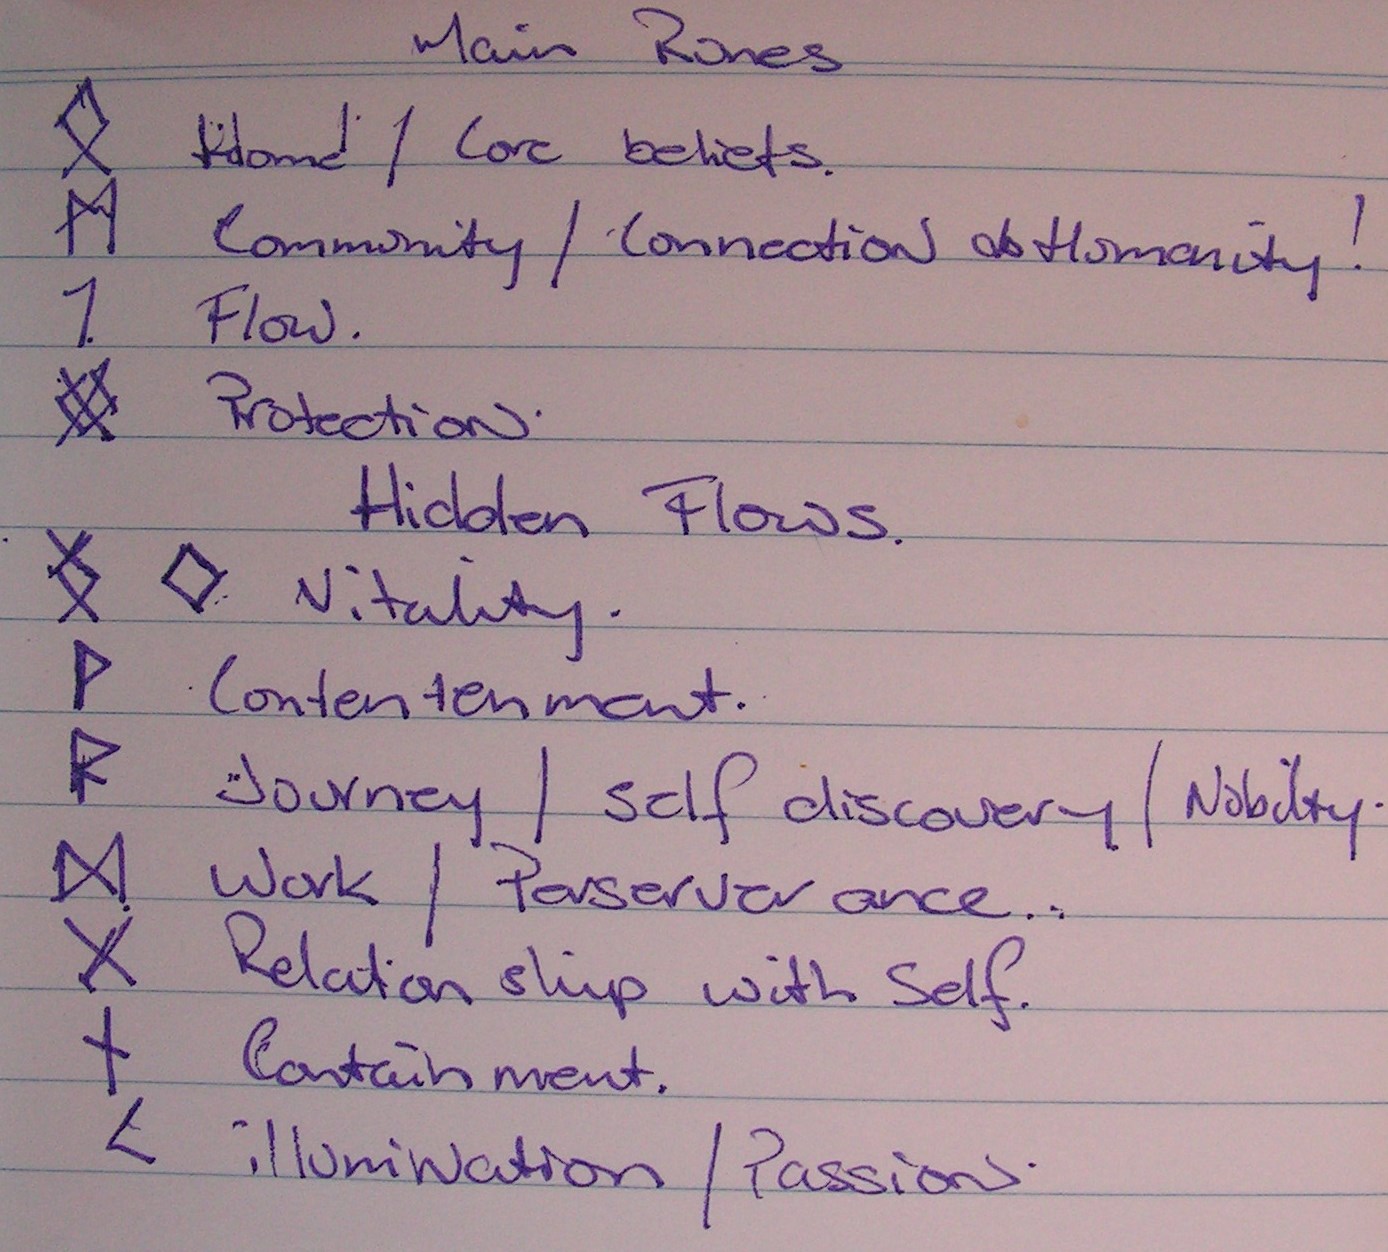 Main Runes
ᛟ Home / Core beliefs.
ᛗ Community / Connection to Humanity!
ᛚ Flow.
Protection.
Hidden Flows.
ᛝ ◇ Vitality.
ᚹ Contentenment.
ᚱ Journey / Self discovery / Nobility.
ᛞ Work / Perserverance..
ᚷ Relationship with Self.
ᚾ Containment.
ᚲ illumination / Passion.